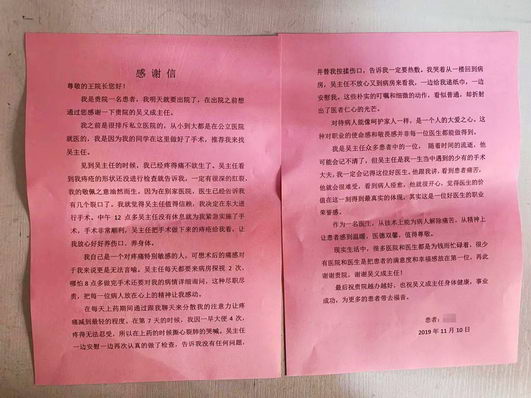 感谢信
尊敬的王院长您好！
我是贵院一名患者，我明天就要出院了，在出院之前想
通过您感谢一下贵院的吴又成主任。
我之前是很排斥私立医院的，从小到大都是在公立医院
就医的，我是因为我的同学在这里做好了手术，推荐我来找
吴主任。
见到吴主任的时候，我已经疼得痛不欲生了、吴主任看
到我痔疮的形状还没进行检查就告诉我，一定有很深的肛裂，
我的敬佩之意油然而生，因为在别家医院，医生已经告诉我
有几个裂口了。我就觉得吴主任值得信赖，我决定在东大进
行手术、中午 12 点多吴主任没有休息就为我紧急实施了手
术，手术非常顺利，吴主任把手术做下来的痔疮给我看，让
我放心好好养伤口、养身体。
我自己是一个对疼痛特别敏感的人，可想术后的痛感对
于我来说更是无法言喻。吴主任每天都要来病房探视 2 次，
哪怕 8 点多做完手术还要对我的病情详细询问，这种尽职尽
责，把每一位病人放在心上的精神让我感动。
在每天上药期间通过跟我聊天来分散我的注意力让疼
痛减到最轻的程度。在第 7 天的时候，我因一早大便 4 次，
疼得无法忍受。所以在上药的时候撕心裂肺的哭喊，吴主任
一边安慰一边再次认真的做了检查，告诉我没有任何问题，
并替我按揉伤口，告诉我一定要热敷。我哭着从一楼回到病
房，吴主任不放心又到病房来看我，一边给我递纸巾，一边
安慰我。这些朴实的叮嘱和细微的动作，看似普通，却折射
出了医者仁心的光芒。
对待病人能像呵护家人一样，是一个人的大爱之心。这
种对职业的使命感和敬畏感并非每一位医生都能做得到。
我是吴主任众多患者中的一位， 随着时间的流逝，他
可能会记不清了，但吴主任是我一生当中遇到的少有的手术
大夫，我一定会记得这位好医生。他跟我讲，看到患者痛苦，
他就会很难受，看到病人痊愈，他就很开心，觉得医生的价
值在这一刻得到最真实的体现；其实这是一位好医生的职业
荣誉感。
作为一名医生，从技术上能为病人解除痛苦，从精神上
让患者感到温暖，医德双馨，值得尊敬。
现实生活中，很多医院和医生都是为钱而忙碌着，很少
有医院和医生是把患者的满意度和幸福感放在第一位，再此
谢谢贵院，谢谢吴又成主任！
最后祝贵院越办越好，也祝吴又成主任身体健康，事业
成功，为更多的患者带去福音。
患者：
2019 年 11 月 10 日